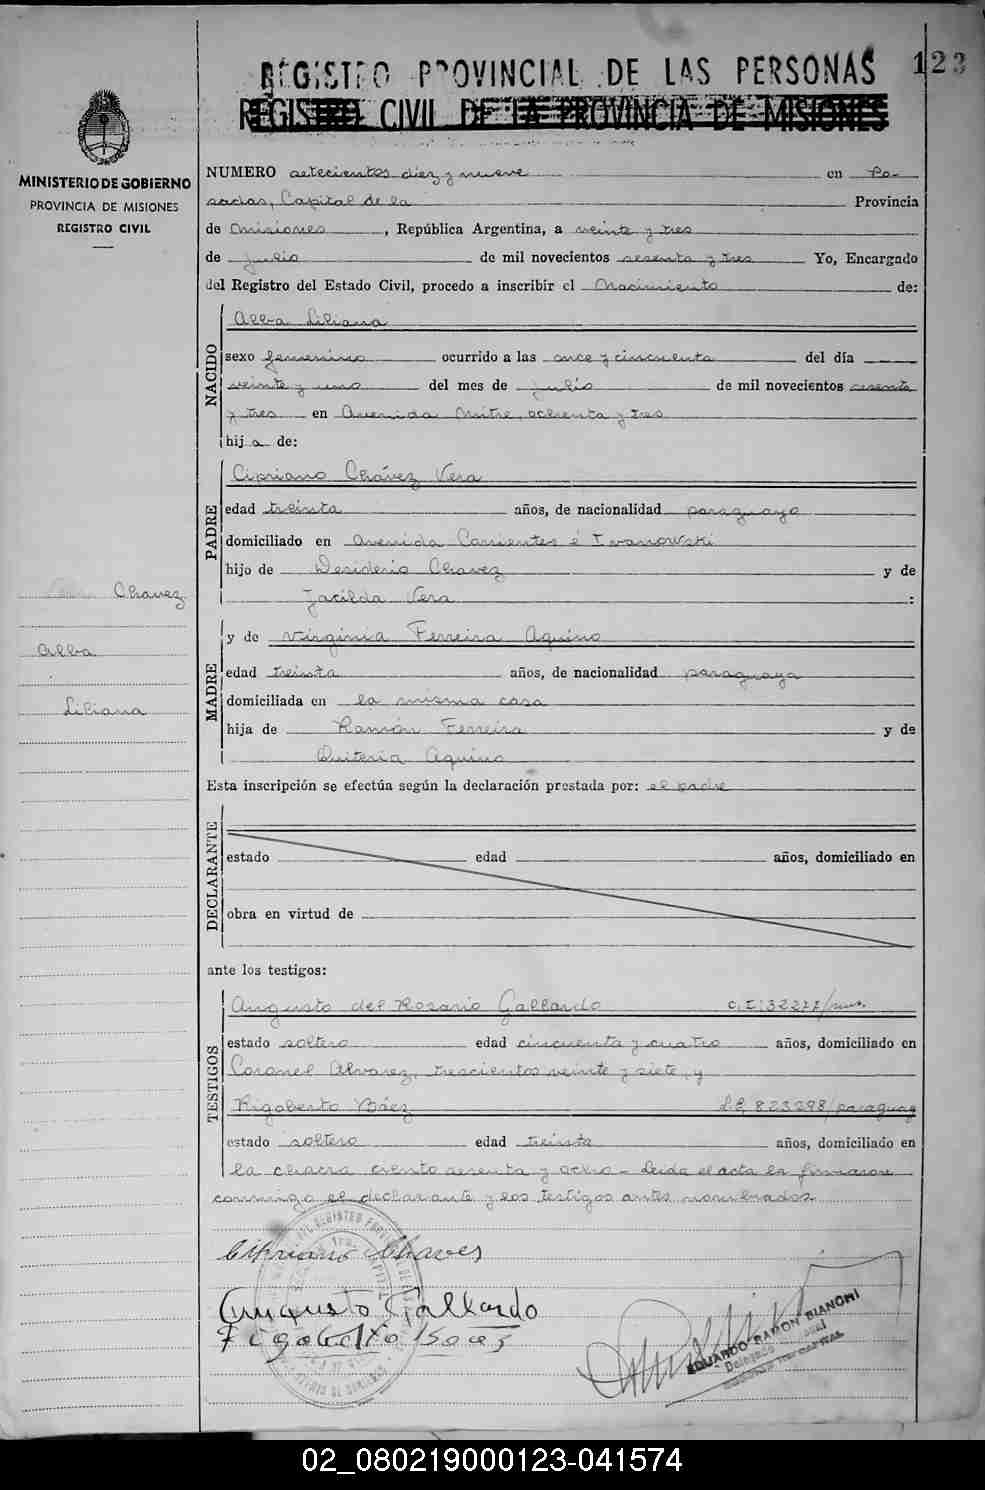 123
REGISTRO PROVINCIAL DE LAS PERSONAS
REGISTRO CIVIL DE LA PROVINCIA DE MISIONES
MINISTERIO DE GOBIERNO
PROVINCIA DE MISIONES
REGISTRO CIVIL
NUMERO setecientos diez y nueve en Po-
sadas, Capital de la Provincia
de Misiones, República Argentina, a veinte y tres
de julio de mil novecientos sesenta y tres Yo, Encargado
del Registro del Estado Civil, procedo a inscribir el Nacimiento de:
NACIDO
Alba Liliana
sexo femenino ocurrido a las once y cincuenta del día
veinte y uno del mes de julio de mil novecientos sesenta
y tres en Avenida Mitre, ochenta y tres
hija de:
PADRE
Cipriano Chávez Vera
edad treinta años, de nacionalidad paraguayo
domiciliado en Avenida Corrientes é Ivanowski
hijo de Desiderio Chavez y de
Jacilda Vera :
MADRE
y de Virginia Ferreira Aquino
edad treinta años, de nacionalidad paraguaya
domiciliada en la misma casa
hija de Ramón Ferreira y de
Quiteria Aquino
Chavez
Alba
Liliana
Esta inscripción se efectúa según la declaración prestada por: el padre
DECLARANTE
estado edad años, domiciliado en
obra en virtud de
ante los testigos:
TESTIGOS
Augusto del Rosario Gallardo C.I: 32277/mnes.
estado soltero edad cincuenta y cuatro años, domiciliado en
Coronel Alvarez, trescientos veinte y siete, y
Rigoberto Báez 823298/paraguay
estado soltero edad treinta años, domiciliado en
la chacra ciento sesenta y ocho - Leida el acta la firmaron
conmigo el declarante y los testigos antes nombrados
Cipriano Chaves
Augusto Gallardo
Rigoberto Baez
EDUARDO RAMON BIANCHI
Delegado
02_080219000123-041574